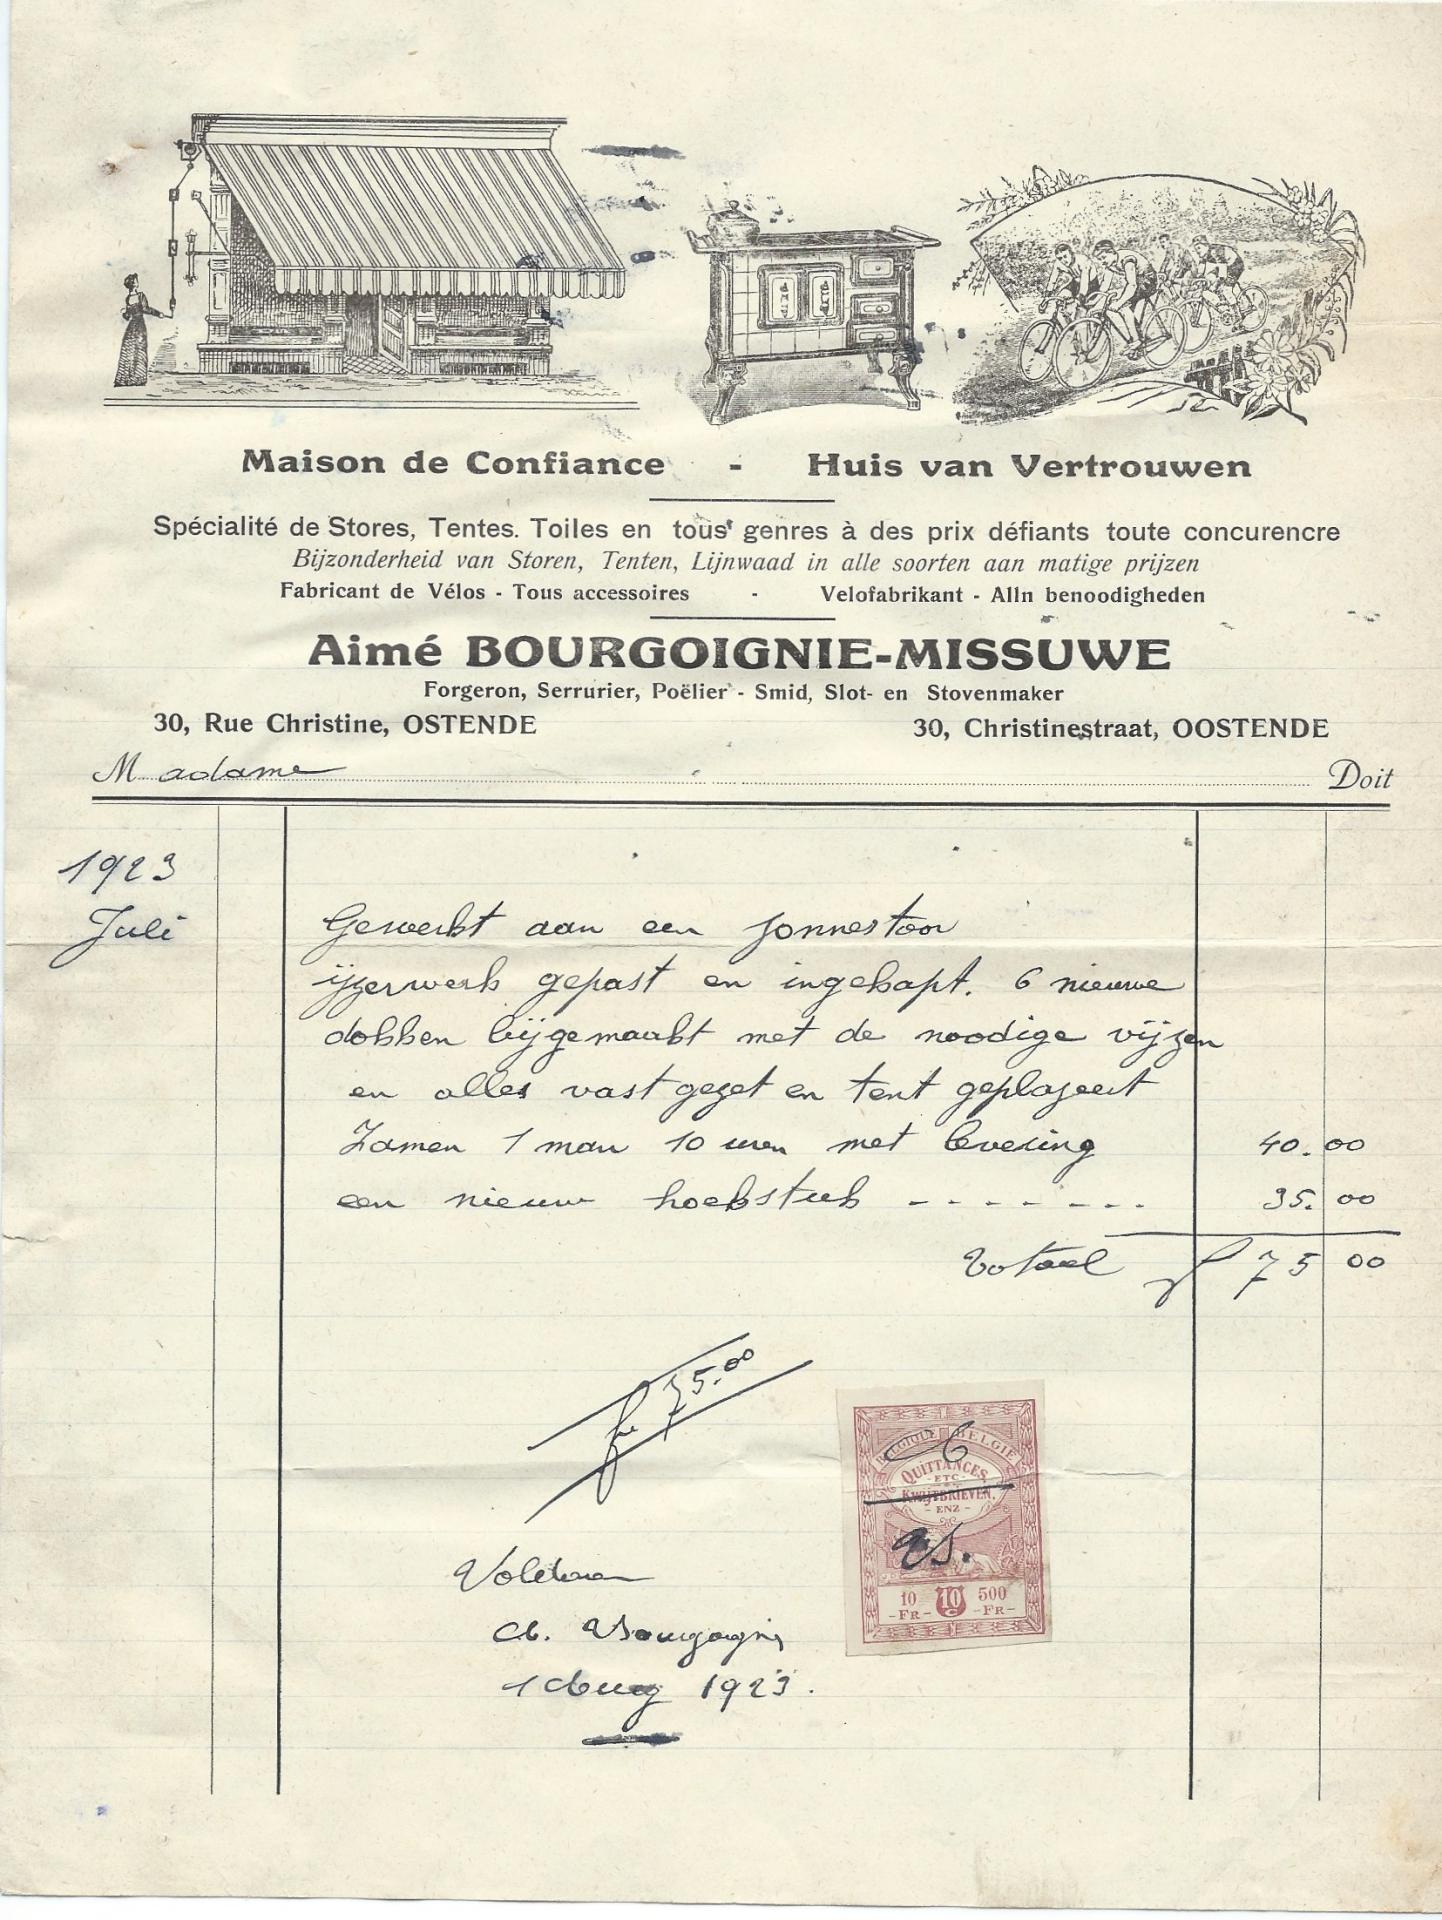 Maison de Confiance - Huis van Vertrouwen
Spécialité de Stores, Tentes. Toiles en tous genres à des prix défiants toute concurencre
Bijzonderheid van Storen, Tenten, Lijnwaad in alle soorten aan matige prijzen
Fabricant de Vélos - Tous accessoires - Velofabrikant - Alln benoodigheden
Aimé BOURGOIGNIE-MISSUWE
Forgeron, Serrurier, Poëlier - Smid, Slot- en Stovenmaker
30, Rue Christine, OSTENDE 30, Christinestraat, OOSTENDE
Madame Doit
1923
Juli Gewerkt aan een zonnestoor
ijzerwerk gepast en ingekapt. 6 nieuwe
dobben bijgemaakt met de noodige vijzen
en alles vast gezet en tent geplazeert
Zamen 1 man 10 uren met levering 40.00
een nieuw hoekstuk - - - - - - - 35.00
Totaal fr 75 00
fr 75.00
BELGIQUE BELGIË
QUITTANCES
- ETC -
KWIJTBRIEVEN.
- ENZ -
10 10 500
-FR- C -FR-
Voldaan
A. Bourgoignie
1 Aug 1923.